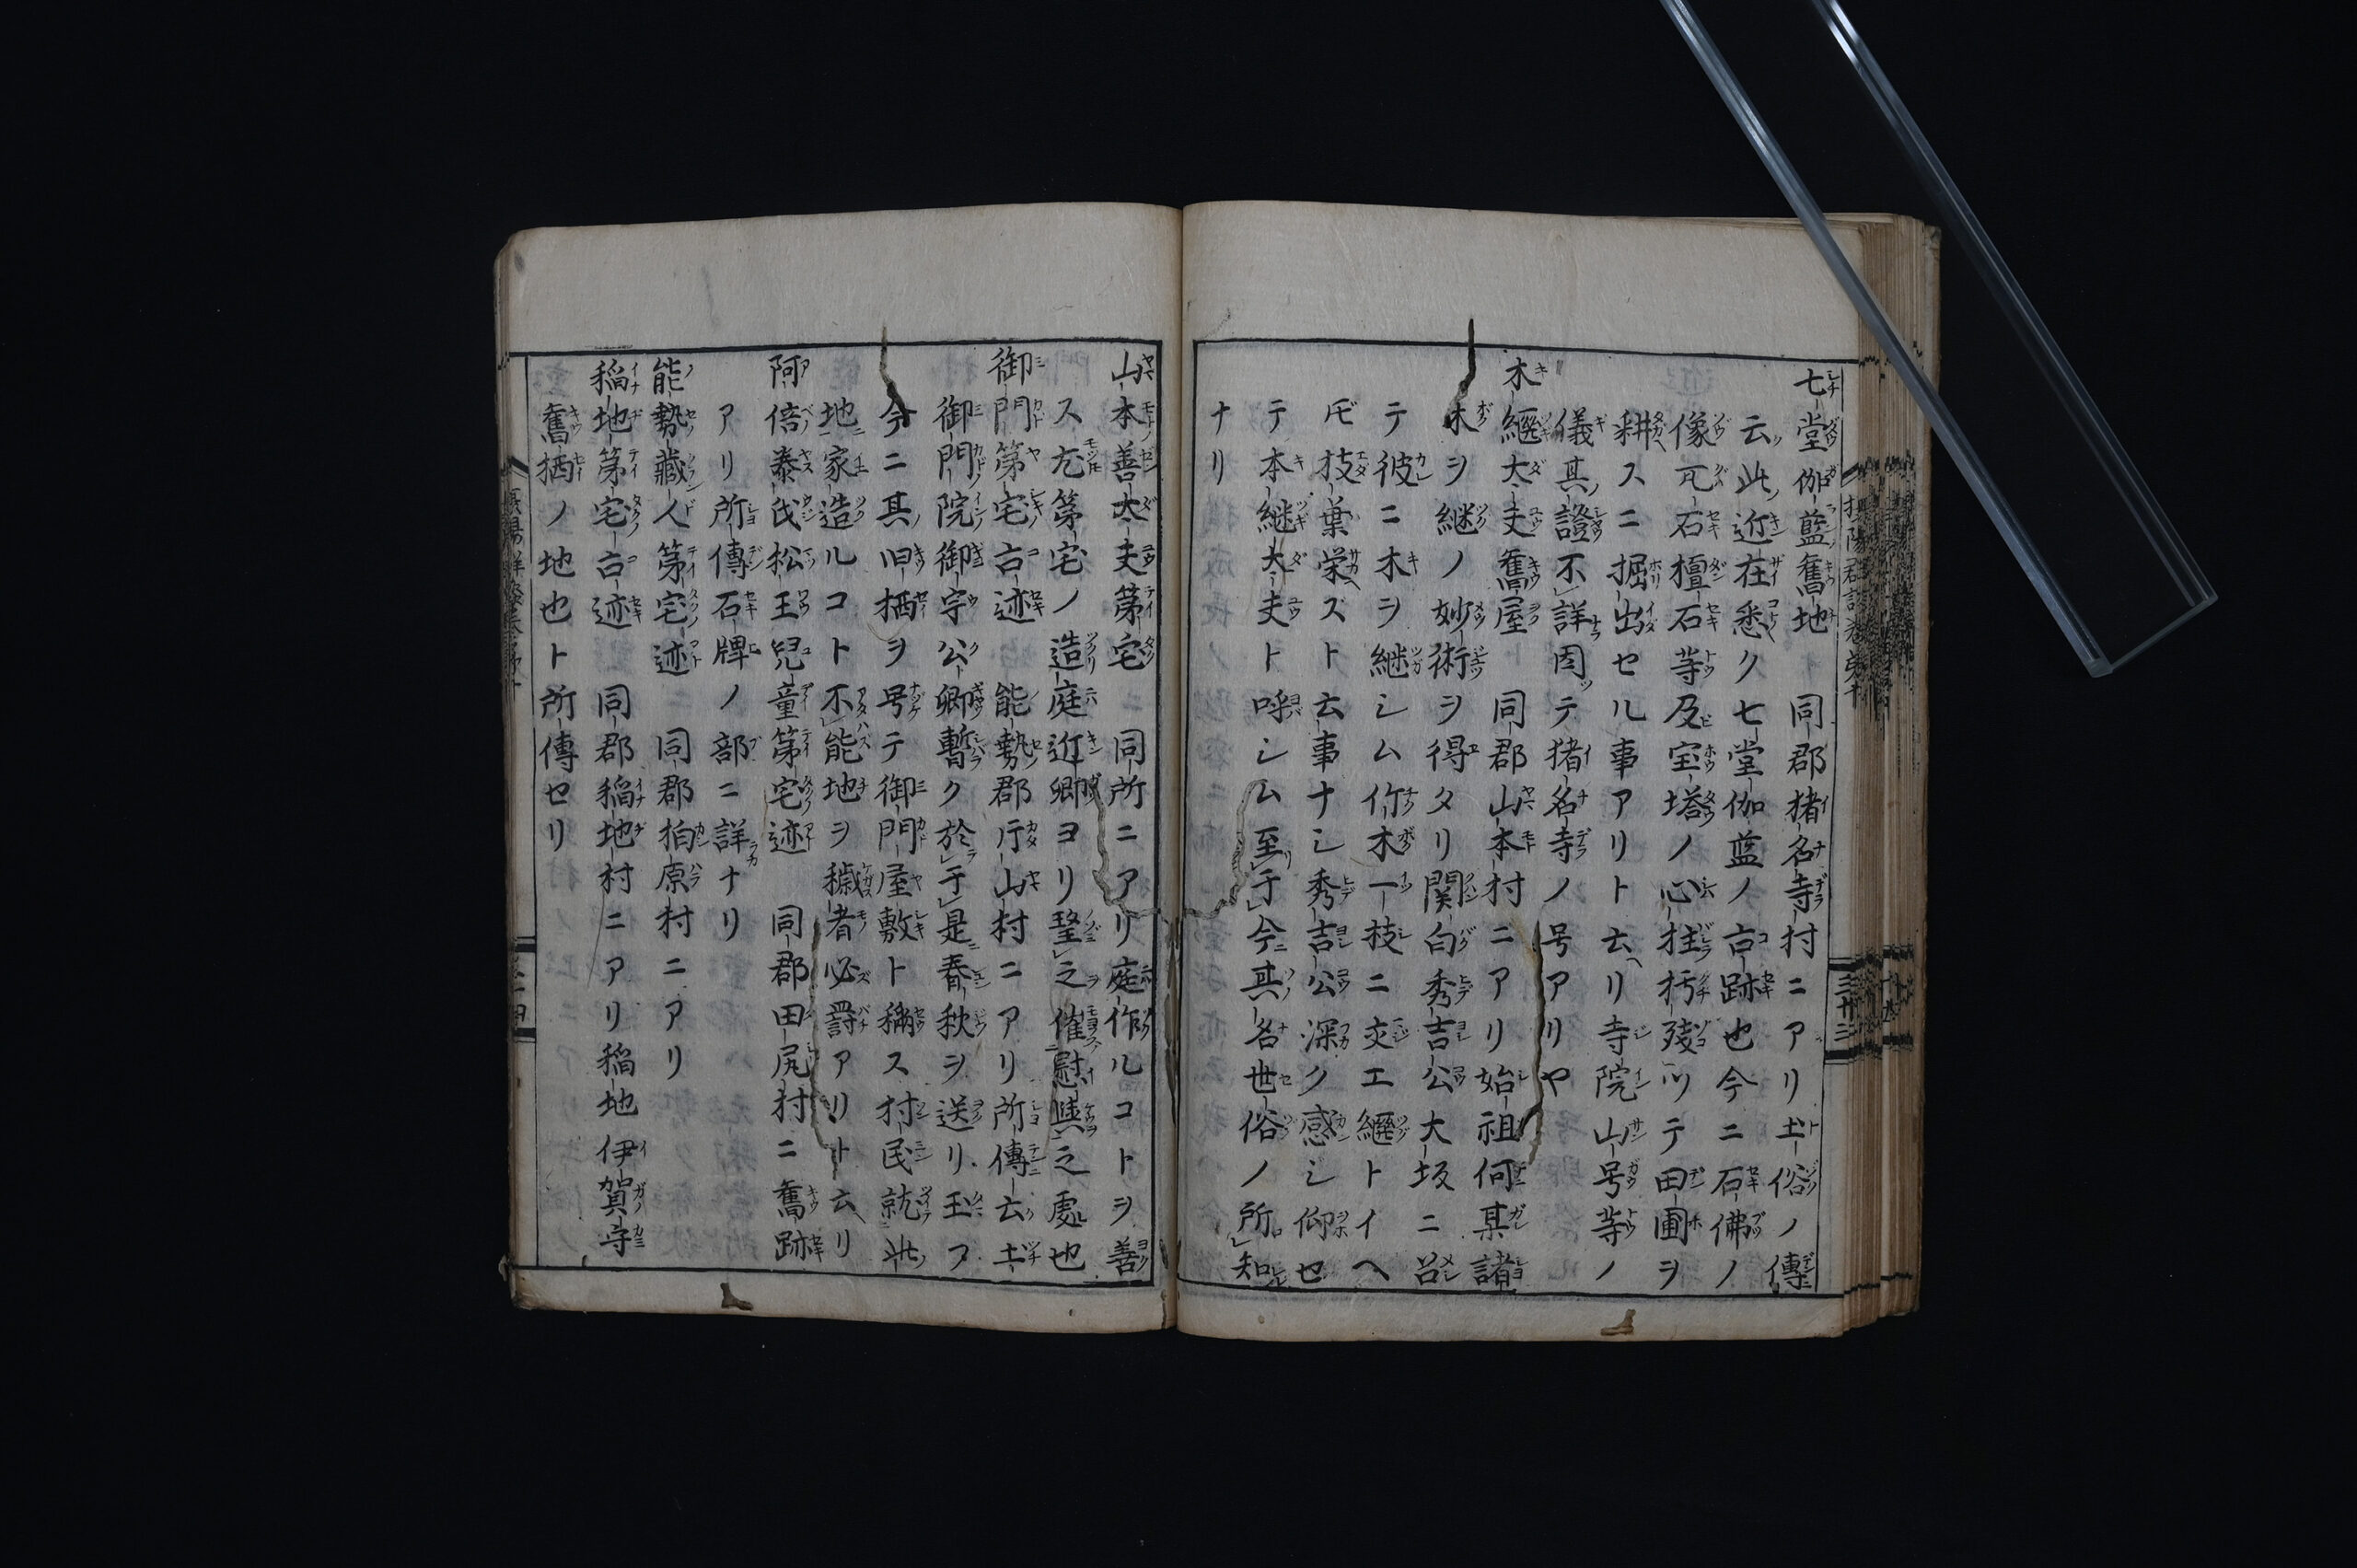 七堂伽藍舊地　同郡猪名寺村ニアリ土俗ノ傳ニ
云此近在悉ク七堂伽藍ノ古跡也今ニ石佛ノ
像瓦石檀石等及ビ宝塔ノ心柱朽殘ツテ田圃ヲ
耕スニ掘出セル事アリト云リ寺院山号等ノ
儀其證不詳因テ猪名寺ノ号アリヤ
木繼太夫舊屋　同郡山本村ニアリ始祖何某諸
木ヲ継ノ妙術ヲ得タリ関白秀吉公大坂ニ召
テ彼ニ木ヲ継シム作木一枝ニ交エ繼トイヘ
𪜈枝葉栄スト云事ナシ秀吉公深ク感シ仰セ
テ木継太夫ト呼シム至于今其名世俗ノ所知
ナリ
山本善太夫第宅　同所ニアリ庭作ルコトヲ善
ス尤第宅ノ造庭近郷ヨリ望之催慰興之處也
御門第宅古迹　能勢郡庁山村ニアリ所傳云土
御門院御宇公卿暫ク於于是春秋ヲ送リ玉フ
今ニ其旧栖ヲ号テ御門屋敷ト稱ス村民就此
地家造ルコト不能地ヲ穢者必罸アリト云リ
阿倍泰氏松王兒童第宅迹　同郡田尻村ニ舊跡
アリ所傳石碑ノ部ニ詳ナリ
能勢藏人第宅迹　同郡栢原村ニアリ
稲地第宅古迹　同郡稲地村ニアリ稲地伊賀守
舊栖ノ地也ト所傳セリ